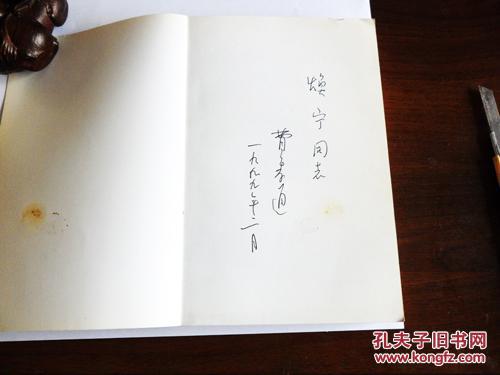 焕宁同志
费孝通
一九九九年二月
孔夫子旧书网
www.kongfz.com